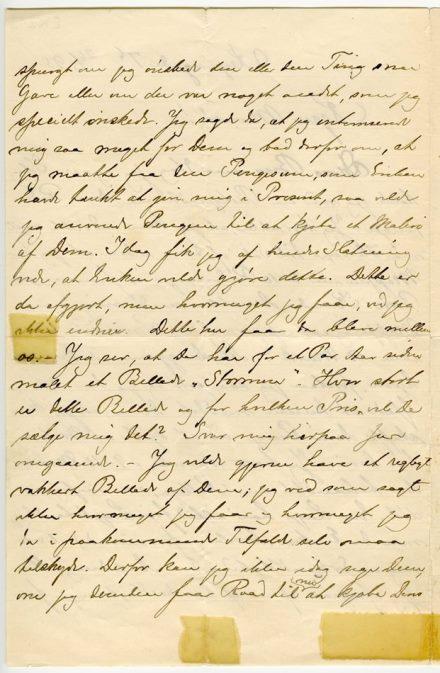 spurgt om jeg ønskede den eller den Ting som
Gave eller om der var noget andet, som jeg
specielt ønskede. Jeg sagde da, at jeg interesserede
mig saa meget for Dem og bad derfor om, at
jeg maatte faa den Pengesum, som Enken
havde tænkt at give mig i Præsent, saa vilde
jeg anvende Pengene til at kjøbe et Maleri
af Dem. I dag fik jeg af hendes
vide, at Enken vilde gjøre dette. Dette er
da afgjort, men hvormeget jeg faar, ved jeg
ikke endnu. Dette her faar da blive mellem
os. – Jeg ser, at De har for et Par Aar siden
malet et Billede „Stormen". Hvor stort
er dette Billede og for hvilken Pris vil De
sælge mig det? Svar mig herpaa
omgaaende. – Jeg vilde gjerne have et rigtigt
vakkert Billede af Dem; jeg ved som sagt
ikke hvormeget jeg faar og hvormeget jeg
da i paakommende Tilfælde selv maa
tilskyde. Derfor kan jeg ikke idag sige Dem,
om jeg desuden faar Raad til nu at kjøbe Deres